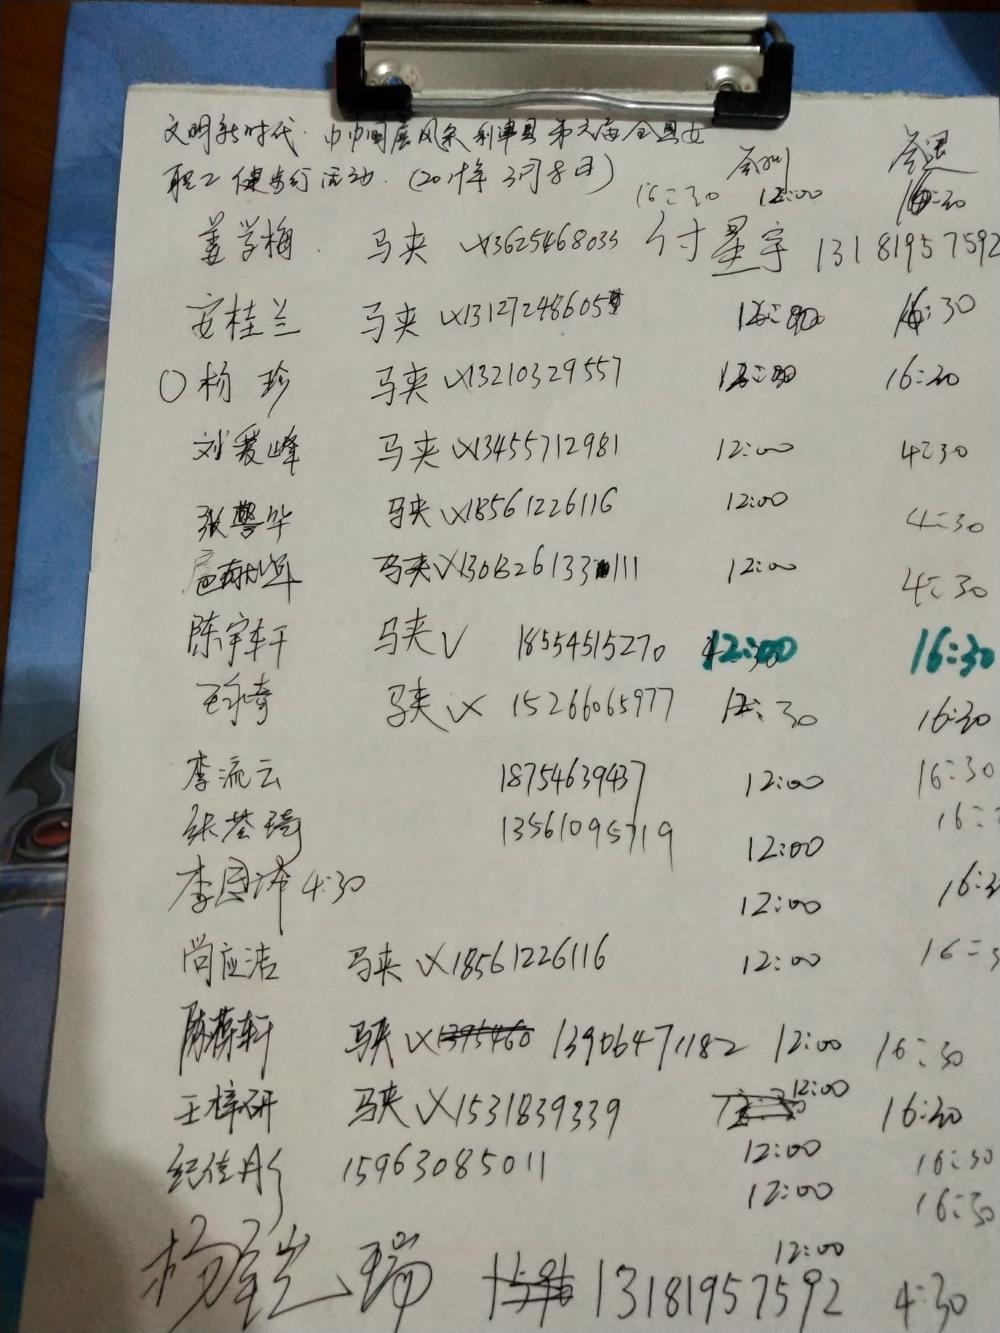 文明新时代·巾帼展风采利津县第六届全县女
职工健步行活动.(2019年3月8日)
16:30 12:00 16:30
姜学梅. 马夹 13625468033 付星宇 13181957592
安桂兰 马夹 13127248605 16:30
杨珍 马夹 13210329557 16:30
刘爱峰 马夹 13455712981 12:00 4:30
张馨华 马夹 18561226116 12:00 4:30
马夹 12:00 4:30
陈宇轩 马夹 V 18554515270 12:00 16:30
马夹 15266065977 12:30 16:30
李流云 18754639437 12:00 16:30
13561095719 12:00 16:
李国泽 4:30 12:00 16:3
尚应洁 马夹 18561226116 12:00 16:3
马夹 13906471182 12:00 16:30
王梓研 马夹 1531839339 12:00 16:30
纪佳彤 15963085011 12:00 16:30
12:00 16:30
12:00
瑞 13181957592 4:30